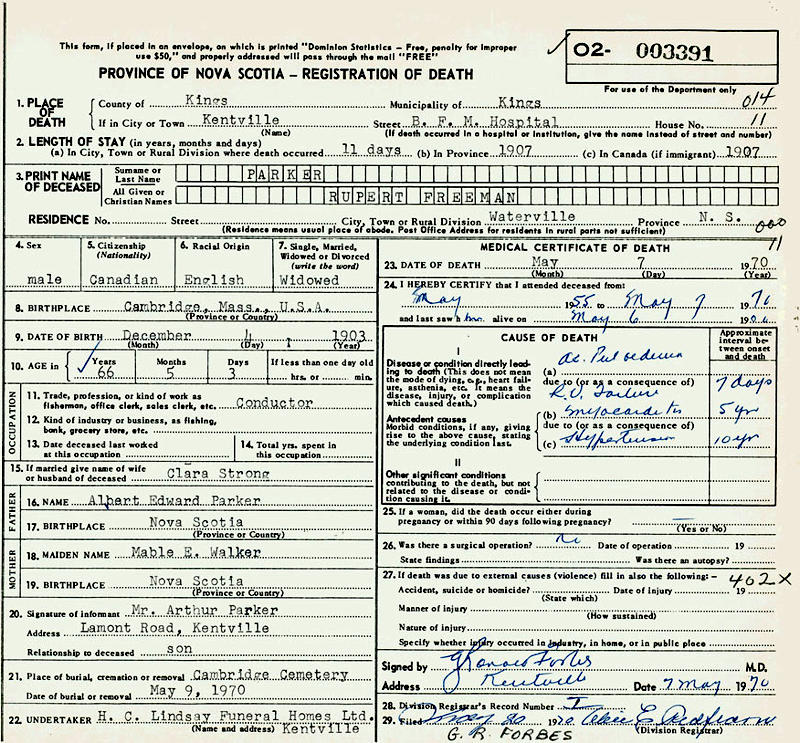 This form, if placed in an envelope, on which is printed "Dominion Statistics - Free, penalty for improper
use $50," and properly addressed will pass through the mail "FREE"
PROVINCE OF NOVA SCOTIA – REGISTRATION OF DEATH
O2- 003391
For use of the Department only
014
1. PLACE OF DEATH
County of Kings Municipality of Kings
If in City or Town Kentville Street B. F. M. Hospital House No. 11
(Name) (If death occurred in a hospital or institution, give the name instead of street and number)
2. LENGTH OF STAY (in years, months and days)
(a) In City, Town or Rural Division where death occurred 11 days (b) In Province 1907 (c) In Canada (if immigrant) 1907
3. PRINT NAME OF DECEASED
Surname or Last Name PARKER
All Given or Christian Names RUPERT FREEMAN
RESIDENCE No. Street City, Town or Rural Division Waterville Province N. S.
(Residence means usual place of abode. Post Office Address for residents in rural parts not sufficient)
000
11
4. Sex
male
5. Citizenship
(Nationality)
Canadian
6. Racial Origin
English
7. Single, Married,
Widowed or Divorced
(write the word)
Widowed
8. BIRTHPLACE Cambridge, Mass., U.S.A.
(Province or Country)
9. DATE OF BIRTH December 4, 1903
(Month) (Day) (Year)
10. AGE in Years Months Days If less than one day old
66 5 3 hrs. or min.
OCCUPATION
11. Trade, profession, or kind of work as
fisherman, office clerk, sales clerk, etc. Conductor
12. Kind of industry or business, as fishing,
bank, grocery store, etc.
13. Date deceased last worked
at this occupation
14. Total yrs. spent in
this occupation
15. If married give name of wife
or husband of deceased Clara Strong
FATHER
16. NAME Albert Edward Parker
17. BIRTHPLACE Nova Scotia
(Province or Country)
MOTHER
18. MAIDEN NAME Mable E. Walker
19. BIRTHPLACE Nova Scotia
(Province or Country)
20. Signature of informant Mr. Arthur Parker
Address Lamont Road, Kentville
Relationship to deceased son
21. Place of burial, cremation or removal Cambridge Cemetery
Date of burial or removal May 9, 1970
22. UNDERTAKER H. C. Lindsay Funeral Homes Ltd.
(Name and address) Kentville
MEDICAL CERTIFICATE OF DEATH
23. DATE OF DEATH May 7 1970
(Month) (Day) (Year)
24. I HEREBY CERTIFY that I attended deceased from:
May 1955 to May 7 1970
and last saw him alive on May 6 19
CAUSE OF DEATH
Approximate
interval between
onset
and death
I
Disease or condition directly leading
to death (This does not mean
the mode of dying, e.g., heart failure,
asthenia, etc. It means the
disease, injury, or complication
which caused death.)
(a) Ac. Pul oedema
due to (or as a consequence of) 7 days
R.V. Failure
Antecedent causes
Morbid conditions, if any, giving
rise to the above cause, stating
the underlying condition last.
(b) Myocarditis 5 yr
due to (or as a consequence of)
(c) Hypertension 10 yr
II
Other significant conditions
contributing to the death, but not
related to the disease or condition
causing it.
25. If a woman, did the death occur either during
pregnancy or within 90 days following pregnancy? —
(Yes or No)
26. Was there a surgical operation? No Date of operation 19
State findings Was there an autopsy?
27. If death was due to external causes (violence) fill in also the following:–
402X
Accident, suicide or homicide? Date of injury 19
(State which)
Manner of injury
(How sustained)
Nature of injury
Specify whether injury occurred in industry, in home, or in public place
Signed by Forbes M.D.
Address Kentville Date 7 May 1970
28. Division Registrar's Record Number
29. Filed May 19
(Division Registrar)
G. R. FORBES